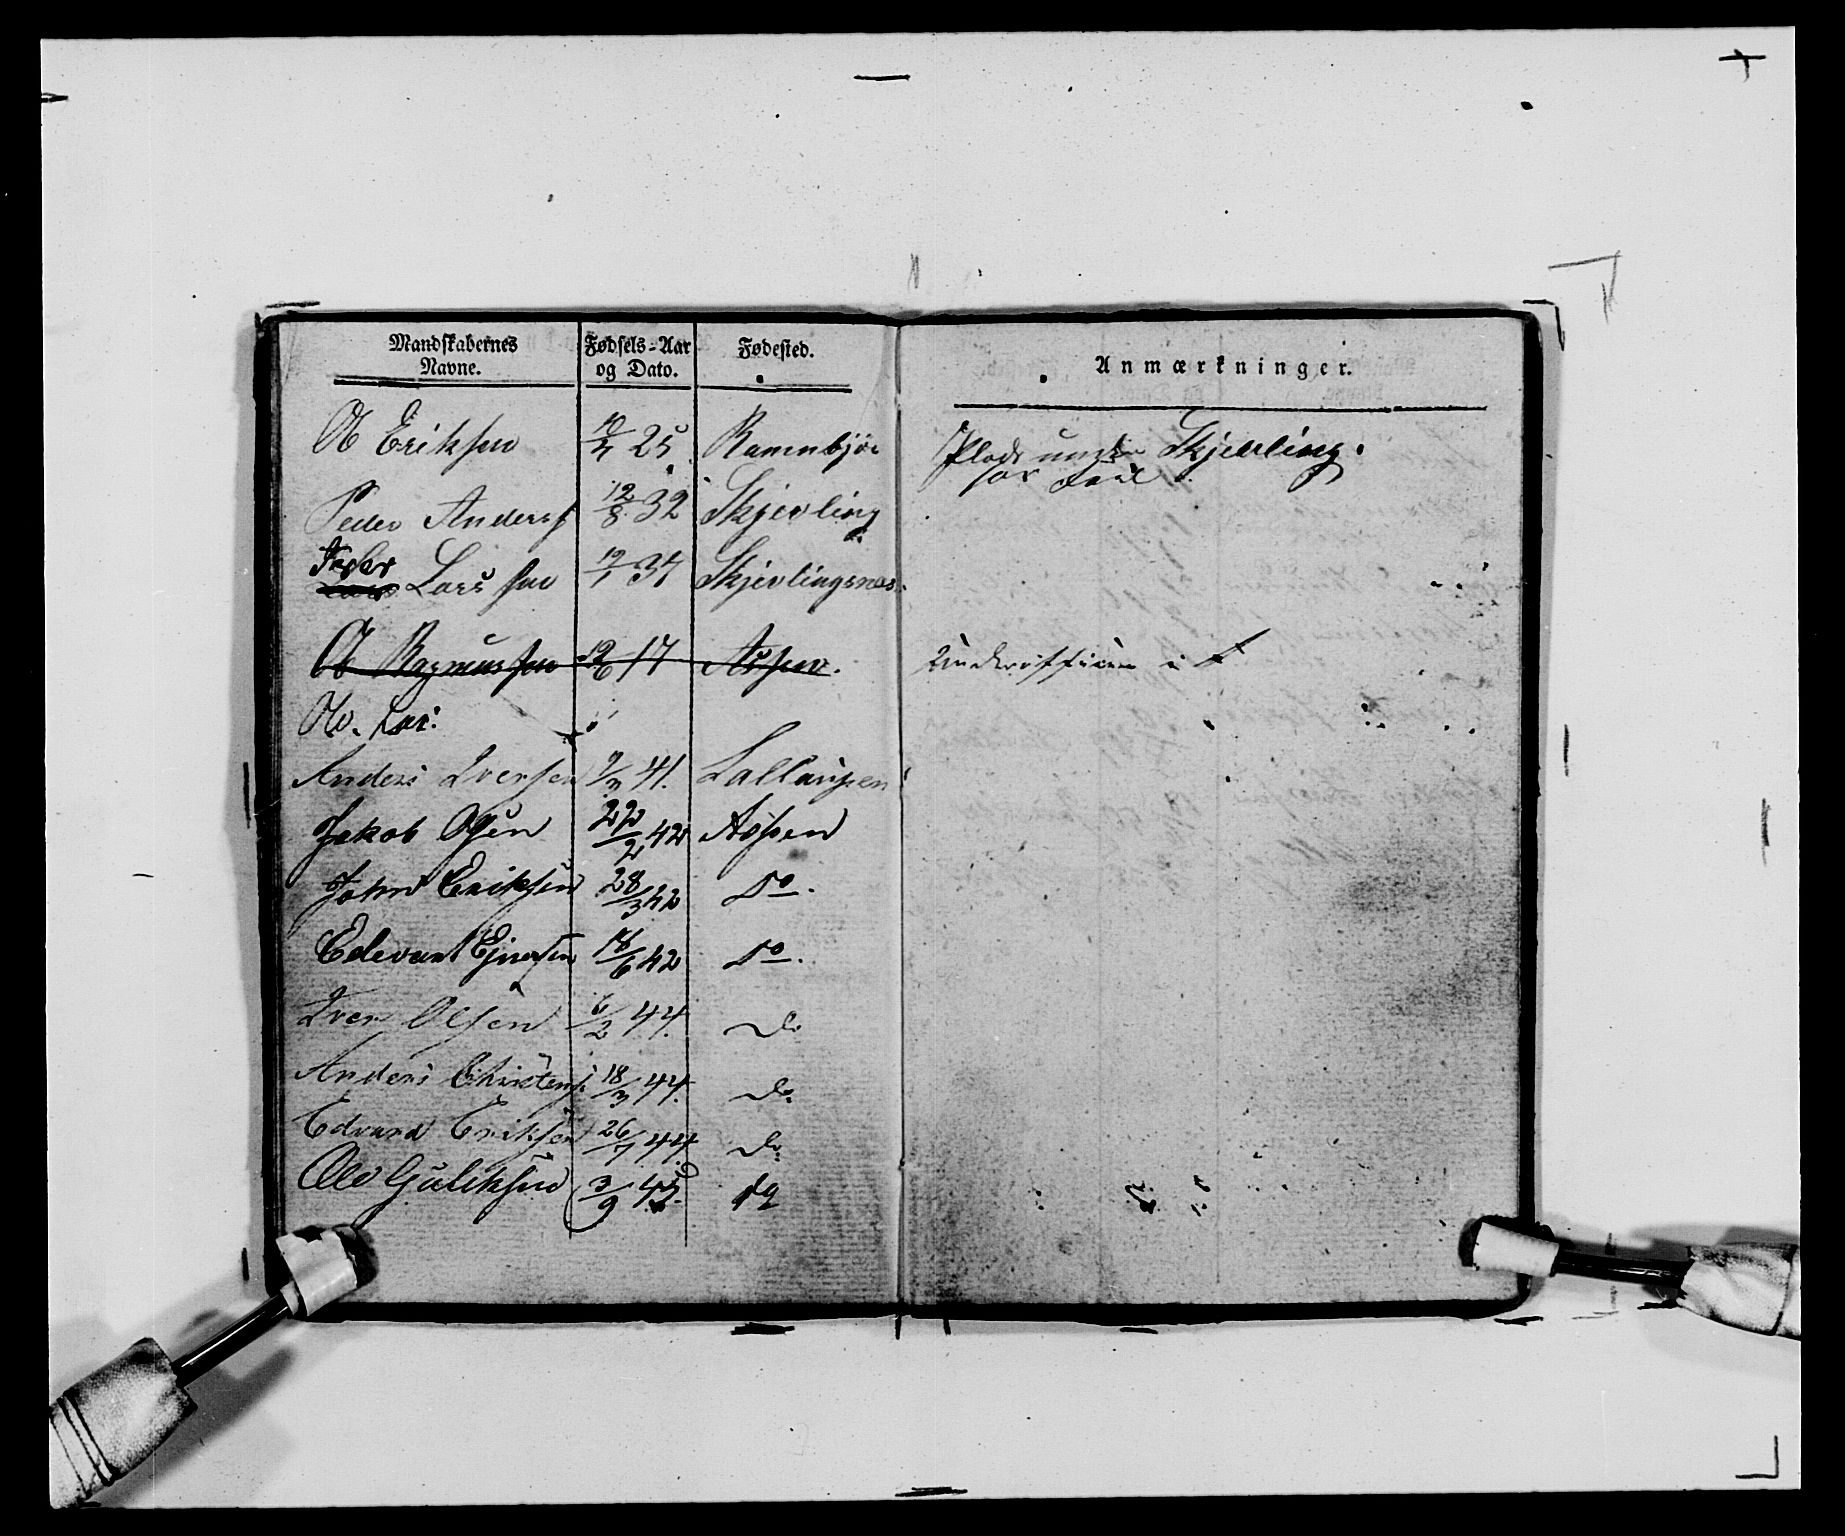 Mandskabernes Navne. Fødsels-Aar og Dato. Fødested. Anmærkninger.
Ol Eriksen 10/4 25 Rammbjør Plads under Skjevling.
for
Peder Anders 12/8 32 Skjevling
Peder Lars Larssen 12/1 37 Skjevlingsnes.
Ol Rasmussen 12/6 17 Aspen. Underofficier i
Ol. Lar:
Anders Iversen 9/3 41. Lallaugen
Jakob Olsen 22/2 42 Aspen
John Eriksen 28/3 42 Do.
Edevart Ejnersen 18/6 42 Do.
Iver Olsen 6/2 44. Do
Anders Christens 18/3 44. Do
Edvard Eriksen 26/7 44 Do
Ole Guliksen 3/9 45 do